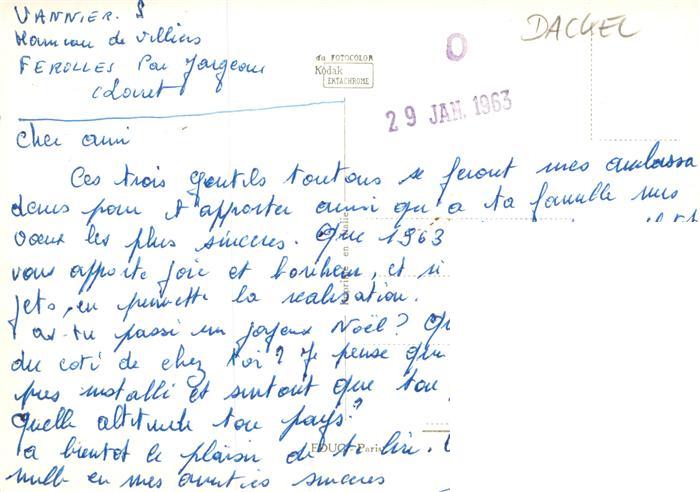 VANNIER. S
Hameau de Villiers
FEROLLES Par Jargeau
Loiret
DACKEL
du FOTOCOLOR
Kodak
EKTACHROME
O
29 JAN. 1963
Cher ami
Ces trois gentils toutous se feront mes ambassa
deurs pour t'apporter ainsi qu'a ta famille mes
voeux les plus sinceres. Que 1963
vous apporte joie et bonheur, et si
jets, en permette la realisation.
as-tu passé un joyeux Noël?
du coté de chez toi? Je pense que
pres installé et surtout que ton
quelle altitude ton pays?
a bientot le plaisir de te lire.
en mes amitiés sinceres
EDUG - Paris